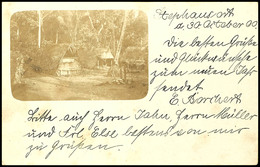 Stephansort
d. 30. October 99.
Die besten Grüße
und Glückwünsche
zum neuen Jahr
sendet
E. Borchert
Bitte auch Herrn Jahn, Herrn Müller
und Frl. Else bestens von mir
zu Grüßen.